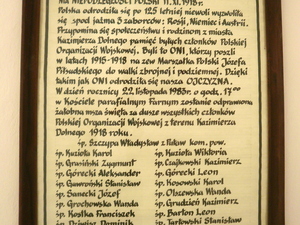 NIEPODLEGŁOŚCI POLSKI 11.XI.1918 r.
Polska odrodziła się po 125 letniej niewoli wyzwoliła
się spod jarzma 3 zaborców: Rosji, Niemiec i Austrii.
Przypomina się społeczeństwu i rodzinom z miasta
Kazimierza Dolnego pamięć byłych członków Polskiej
Organizacji Wojskowej. Byli to ONI, którzy poszli
w latach 1915-1918 na zew Marszałka Polski Józefa
Piłsudskiego do walki zbrojnej i podziemnej. Dzięki
takim jak ONI odrodziła się nasza OJCZYZNA.
W dzień rocznicy 22.listopada 1985r. o godz. 17⁰⁰
w Kościele parafialnym Farnym zostanie odprawiona
żałobna msza święta za dusze wszystkich członków
Polskiej Organizacji Wojskowej z terenu Kazimierza
Dolnego 1918 roku.
śp. Szczypa Władysław z Puław kom. pow.
śp. Kuzioła Karol śp. Kuzioła Wiktoria
śp. Grasiński Zygmunt śp. Czajkowski Kazimierz
śp. Górecki Aleksander śp. Górecki Leon
śp. Gawroński Stanisław śp. Kosowski Karol
śp. Sanecki Józef śp. Olszowska Wanda
śp. Grochowska Wanda śp. Grudzień Kazimierz
śp. Kostka Franciszek śp. Barton Leon
śp. Dominik śp. Turkowski Stanisław